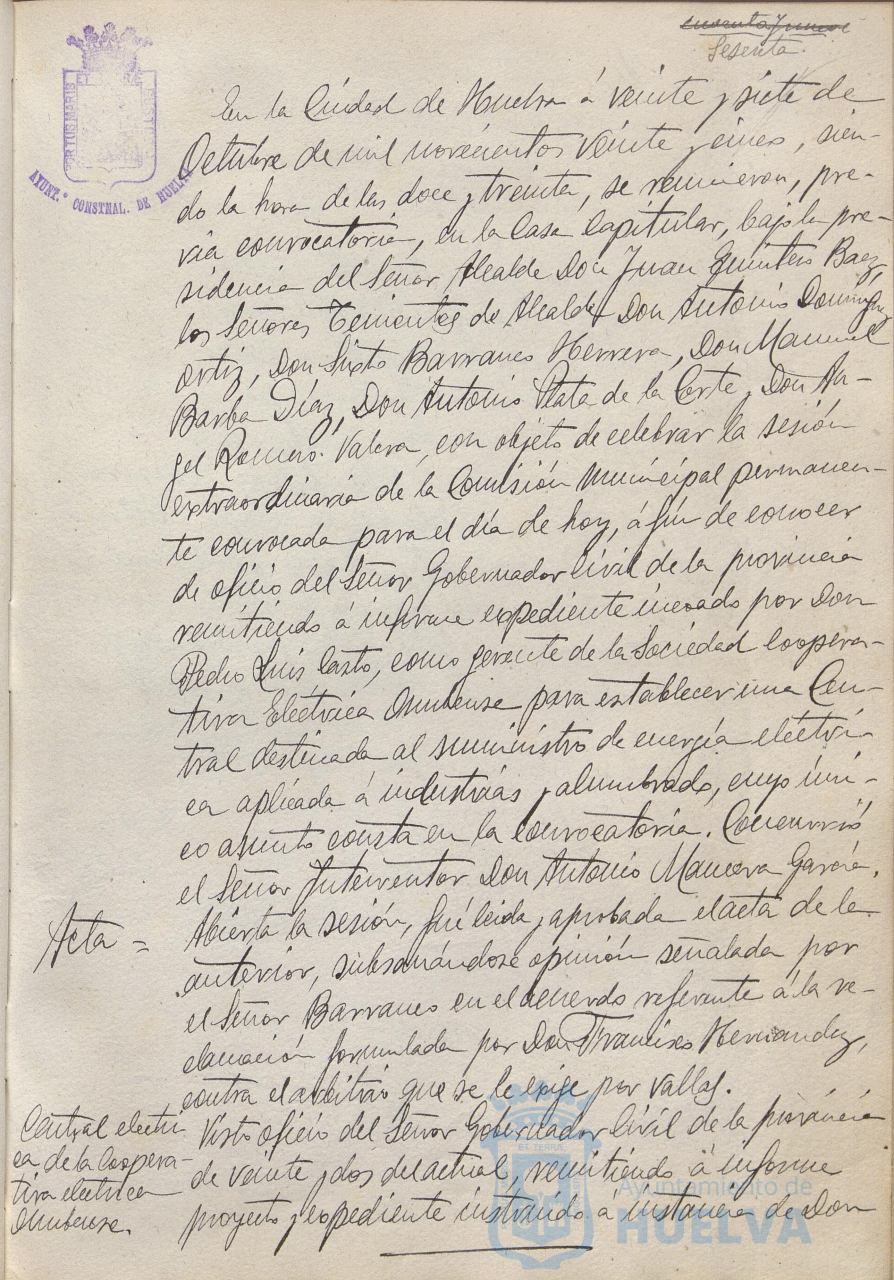 Sesenta
PORTUS MARIS ET TERRÆ CUSTODIA
AYUNT.º CONSTNAL. DE HUELVA
En la Ciudad de Huelva á veinte y siete de
Octubre de mil novecientos veinte y cinco, sien-
do la hora de las doce y treinta, se reunieron, pre-
via convocatoria, en la Casa Capitular, bajo la pre-
sidencia del Señor Alcalde Don Juan Quintero Baez,
los Señores Tenientes de Alcalde Don Antonio Domínguez
Ortiz, Don Sixto Barranco Herrera, Don Manuel
Barba Díaz, Don Antonio Plata de la Corte y Don An-
gel Romero Valera, con objeto de celebrar la sesión
extraordinaria de la Comisión Municipal permanen-
te convocada para el día de hoy, á fin de conocer
de oficio del Señor Gobernador Civil de la provincia
remitiendo á informe expediente incoado por Don
Pedro Luis Casto, como gerente de la Sociedad Coopera-
tiva Eléctrica Onubense para establecer una Cen-
tral destinada al suministro de energía eléctri-
ca aplicada á industrias y alumbrado, cuyo úni-
co asunto consta en la convocatoria. Concurrió
el Señor Interventor Don Antonio Mancera García.
Acta =
Abierta la sesión, fué leida y aprobada el acta de la
anterior, subsanándose opinión señalada por
el Señor Barranco en el acuerdo referente á la re-
clamación formulada por Don Francisco Hernandez,
contra el arbitrio que se le exige por vallas.
Central eléctri
ca de la Coopera-
tiva electrica
Onubense.
Visto oficio del Señor Gobernador Civil de la provincia
de veinte y dos del actual, remitiendo á informe
proyecto y expediente instruido á instancia de Don
Ayuntamiento de
HUELVA